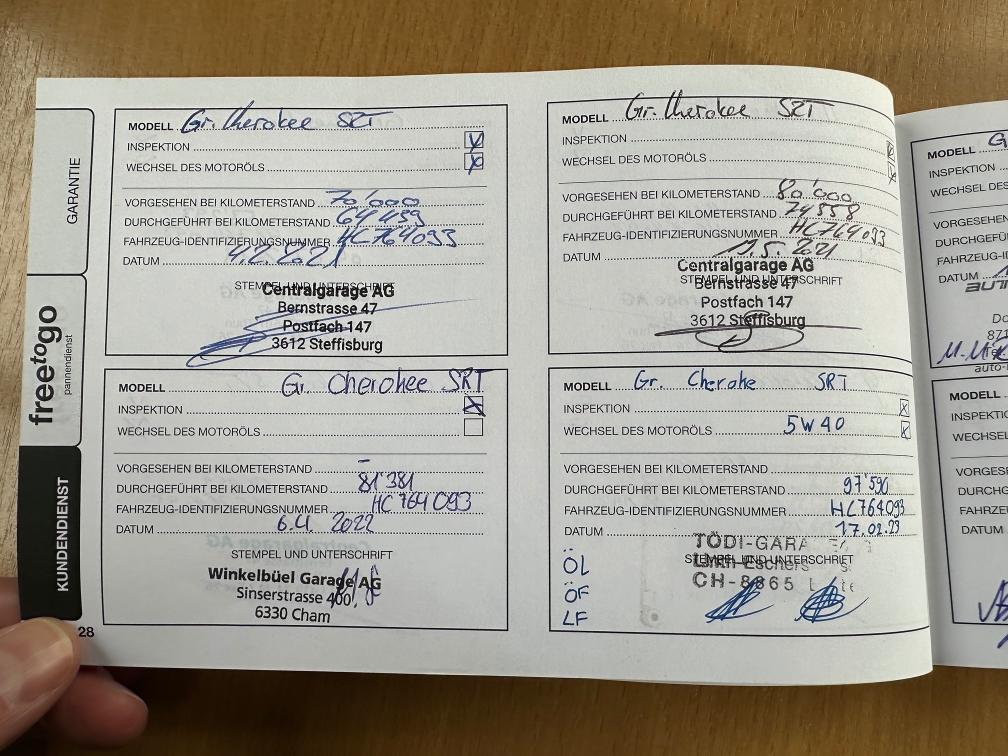 GARANTIE
freetogo
pannendienst
KUNDENDIENST
28
MODELL Gr. Cherokee SRT
INSPEKTION
WECHSEL DES MOTORÖLS
VORGESEHEN BEI KILOMETERSTAND 70'000
DURCHGEFÜHRT BEI KILOMETERSTAND 64'439
FAHRZEUG-IDENTIFIZIERUNGSNUMMER HC764093
DATUM 4.2.2021
STEMPEL UND UNTERSCHRIFT
Centralgarage AG
Bernstrasse 47
Postfach 147
3612 Steffisburg
MODELL Gr. Cherokee SRT
INSPEKTION
WECHSEL DES MOTORÖLS
VORGESEHEN BEI KILOMETERSTAND 80'000
DURCHGEFÜHRT BEI KILOMETERSTAND 74'558
FAHRZEUG-IDENTIFIZIERUNGSNUMMER HC764093
DATUM 11.5.2021
STEMPEL UND UNTERSCHRIFT
Centralgarage AG
Bernstrasse 47
Postfach 147
3612 Steffisburg
MODELL Gr. Cherokee SRT
INSPEKTION
WECHSEL DES MOTORÖLS
VORGESEHEN BEI KILOMETERSTAND –
DURCHGEFÜHRT BEI KILOMETERSTAND 81'381
FAHRZEUG-IDENTIFIZIERUNGSNUMMER HC764093
DATUM 6.4 2022
STEMPEL UND UNTERSCHRIFT
Winkelbüel Garage AG
Sinserstrasse 400
6330 Cham
MODELL Gr. Cherokee SRT
INSPEKTION
WECHSEL DES MOTORÖLS 5W40
VORGESEHEN BEI KILOMETERSTAND
DURCHGEFÜHRT BEI KILOMETERSTAND 97'590
FAHRZEUG-IDENTIFIZIERUNGSNUMMER HC764093
DATUM 17.02.23
STEMPEL UND UNTERSCHRIFT
TÖDI-GARA
CH-8865
ÖL
ÖF
LF
MODELL G
INSPEKTION
WECHSEL DES
VORGESEHEN
DURCHGEFÜ
FAHRZEUG-ID
DATUM
MODELL
INSPEKTIO
WECHSEL
VORGES
DURCHG
FAHRZE
DATUM